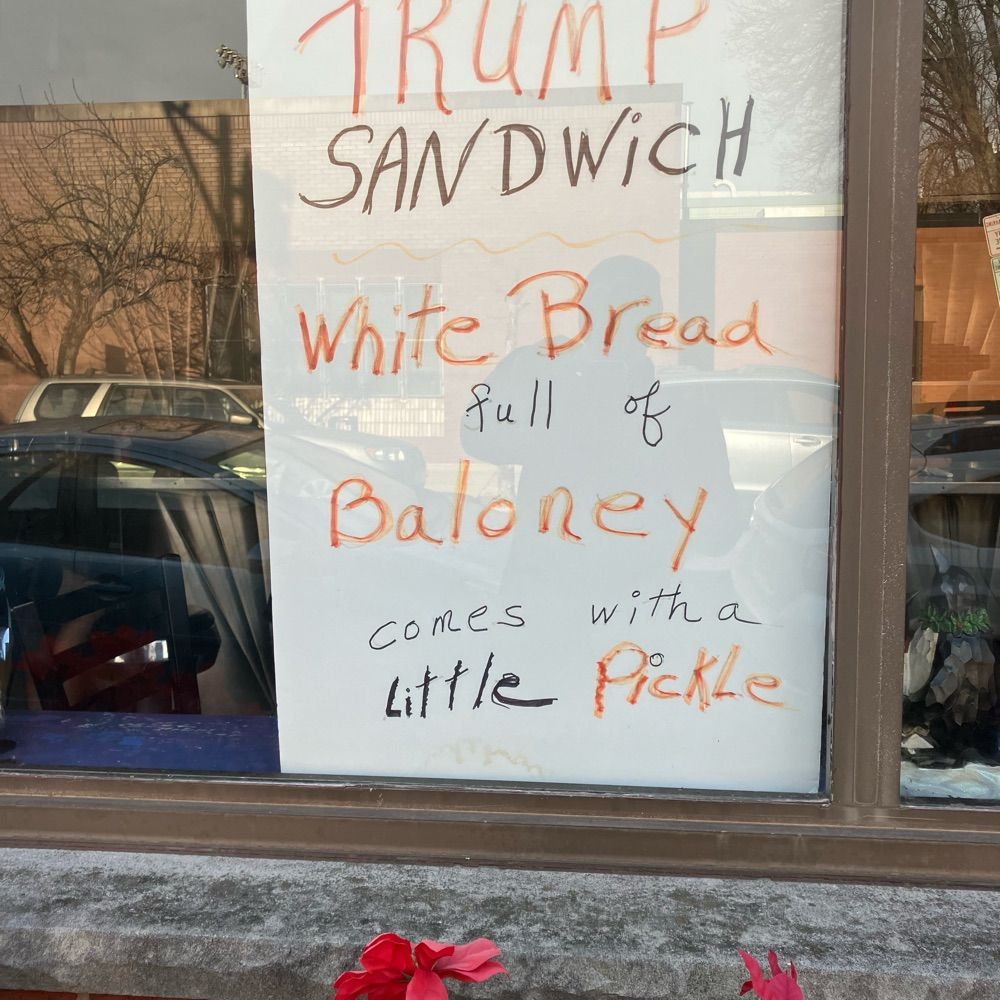 TRUMP
SANDWiCH
White Bread
full of
Baloney
comes with a
Little Pickle